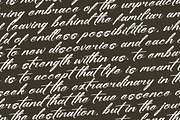 embracing of the unpredicta
f leaving behind the familiar an
ld of endless possibilities, wh
to new discoveries and each
s to growth within us. To em
is to accept that life is mean
seek out the extraordinary in t
erstand that the true essence
the destination, but in the jou